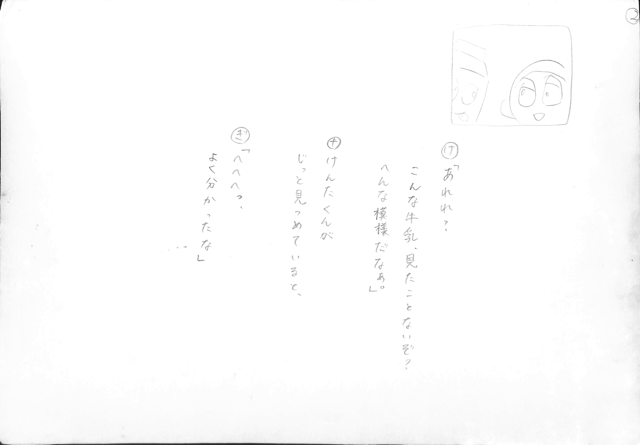 ②
け「あれれ?
こんな牛乳、見たことないぞ?
へんな模様だなぁ。」
ナ けんたくんが
じっと見つめていると、
ぎ「へへへっ。
よく分かったな」